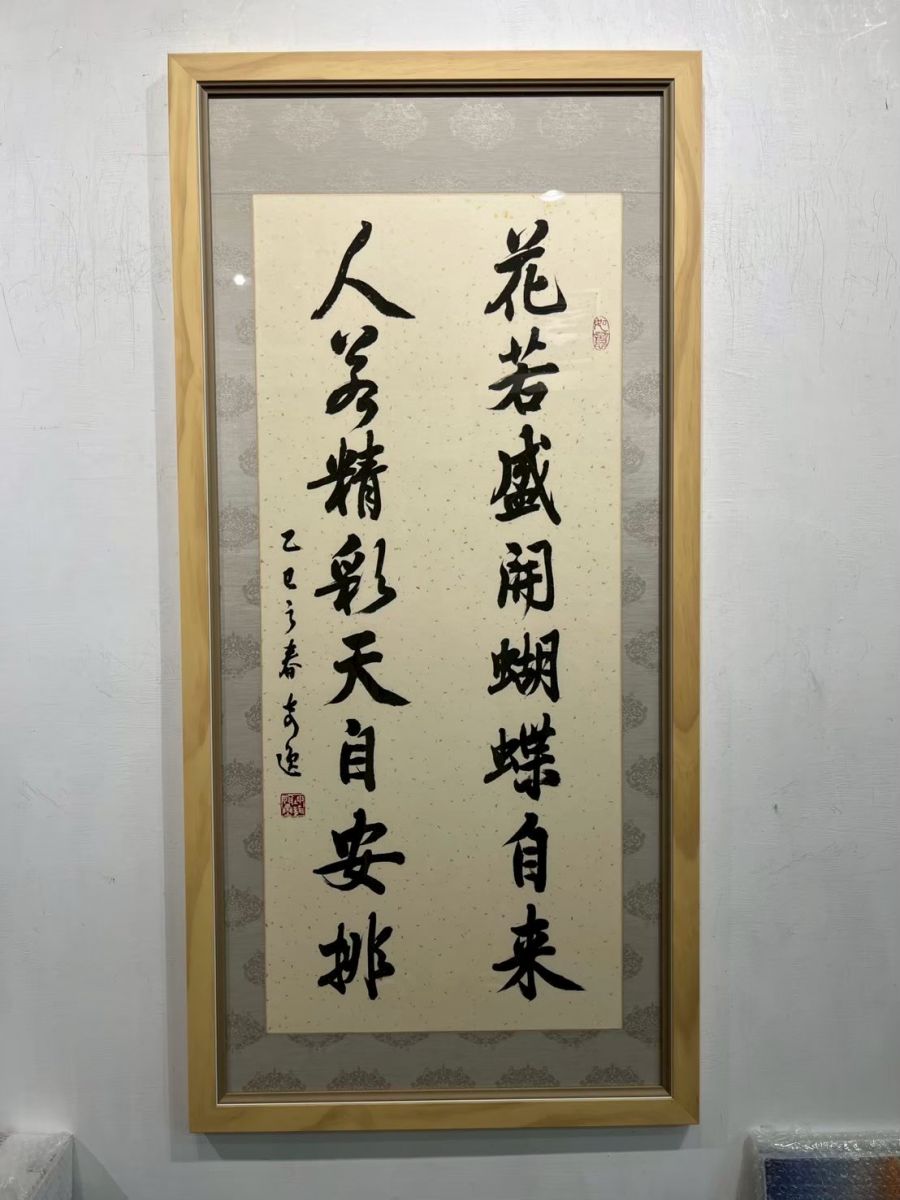 花若盛開蝴蝶自来
人若精彩天自安排
乙巳之春奇逸